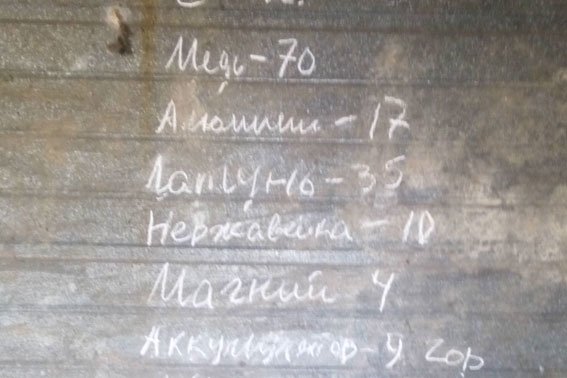 Медь - 70
Алюмини - 17
Латунь - 35
Нержавейка - 10
Магний 4
Аккумулятор - 4 гор